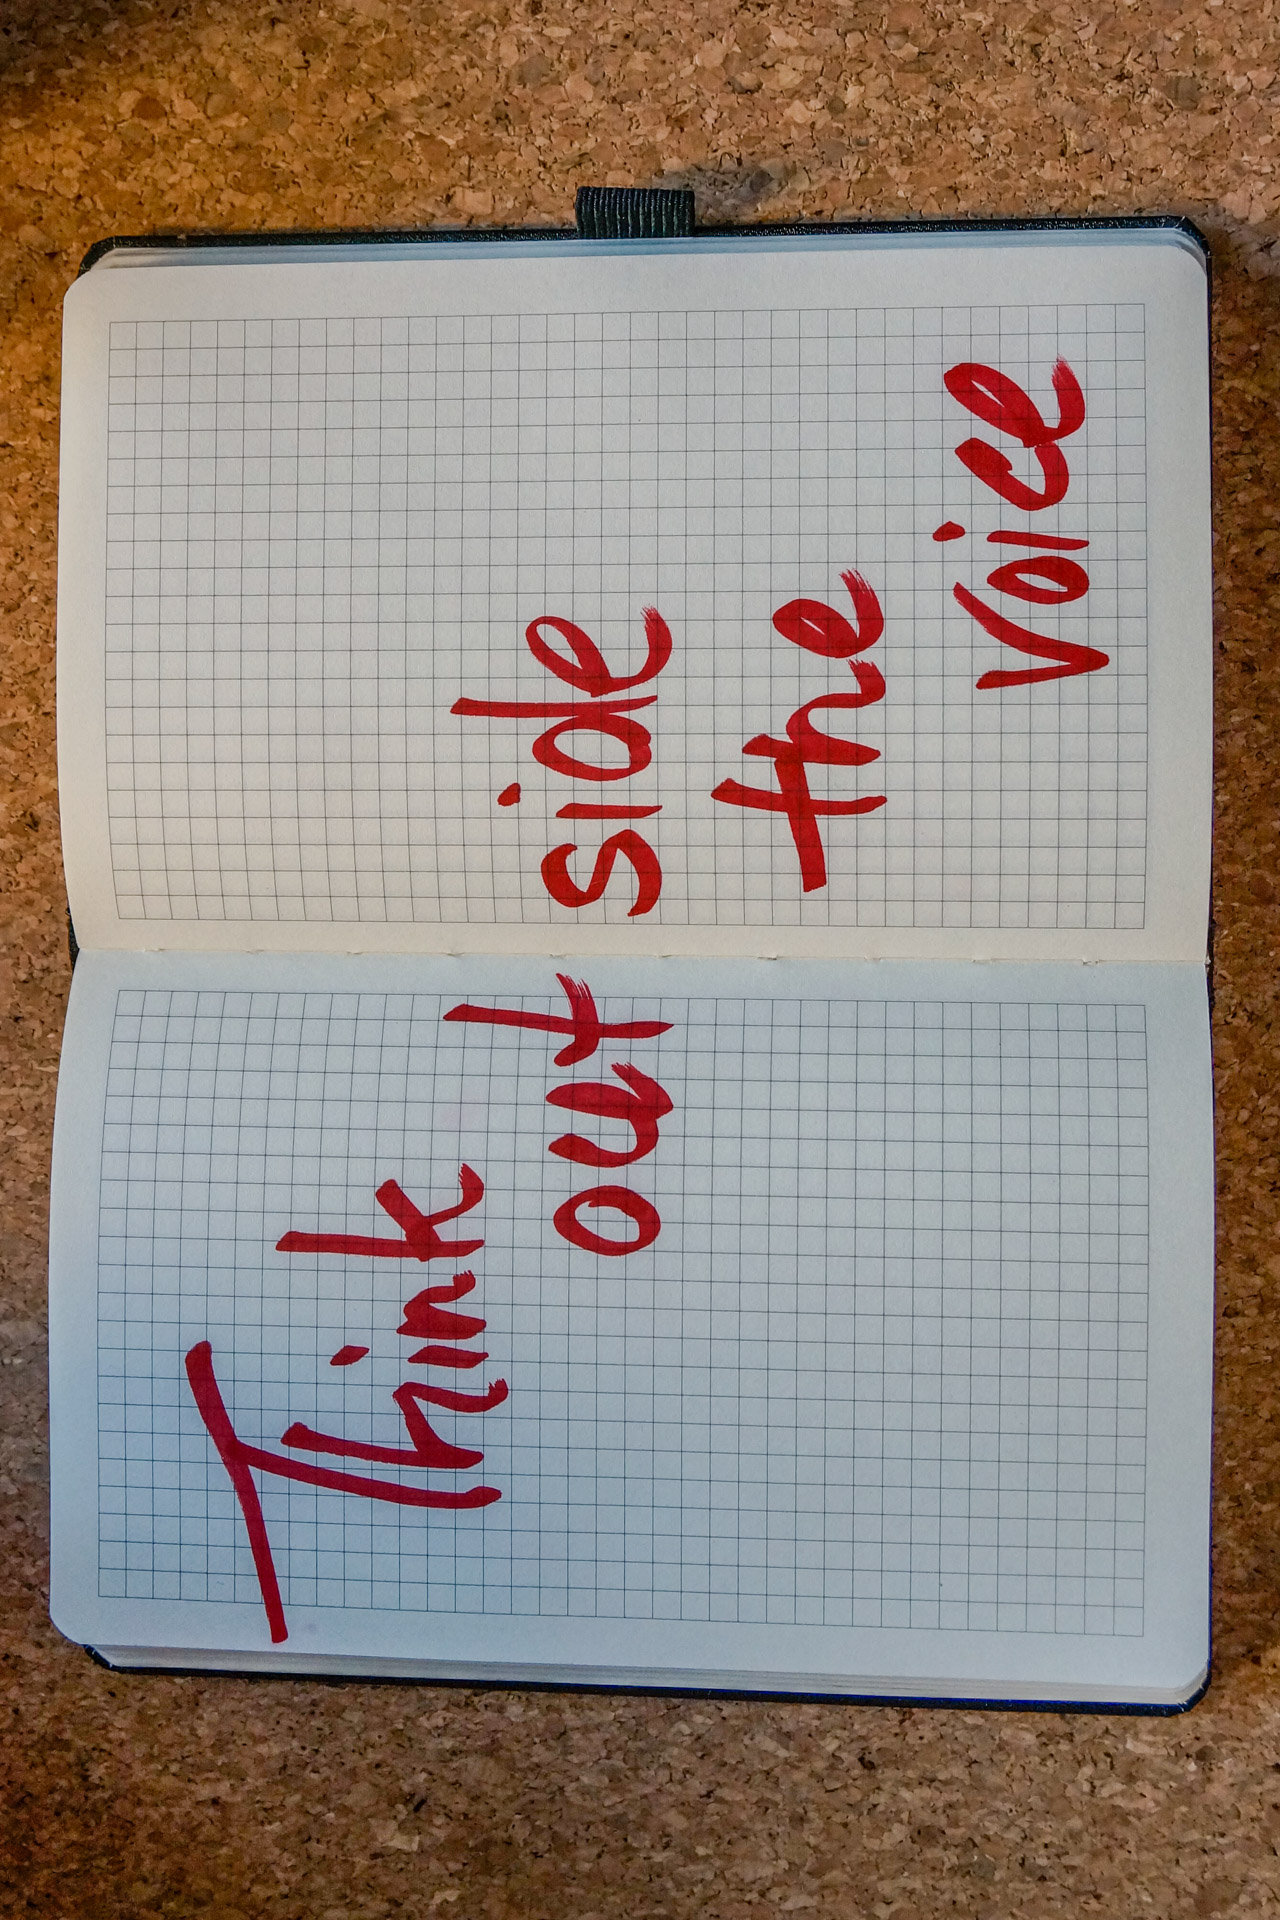 Think
out side
the
voice